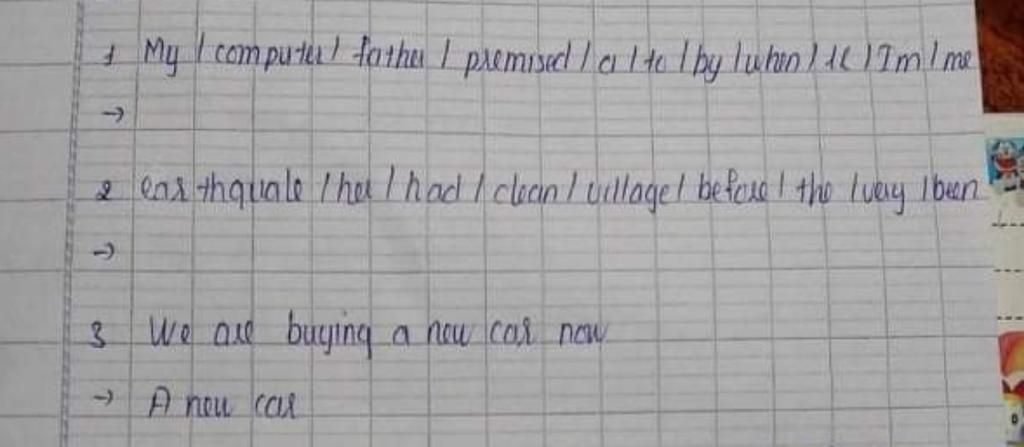 1 My / computer / father / premised / a / to / by / when / 16 / I'm / me
→
2 earthquale / her / had / clean / village / before / the / very / been
→
3 We are buying a new car now
→ A new car